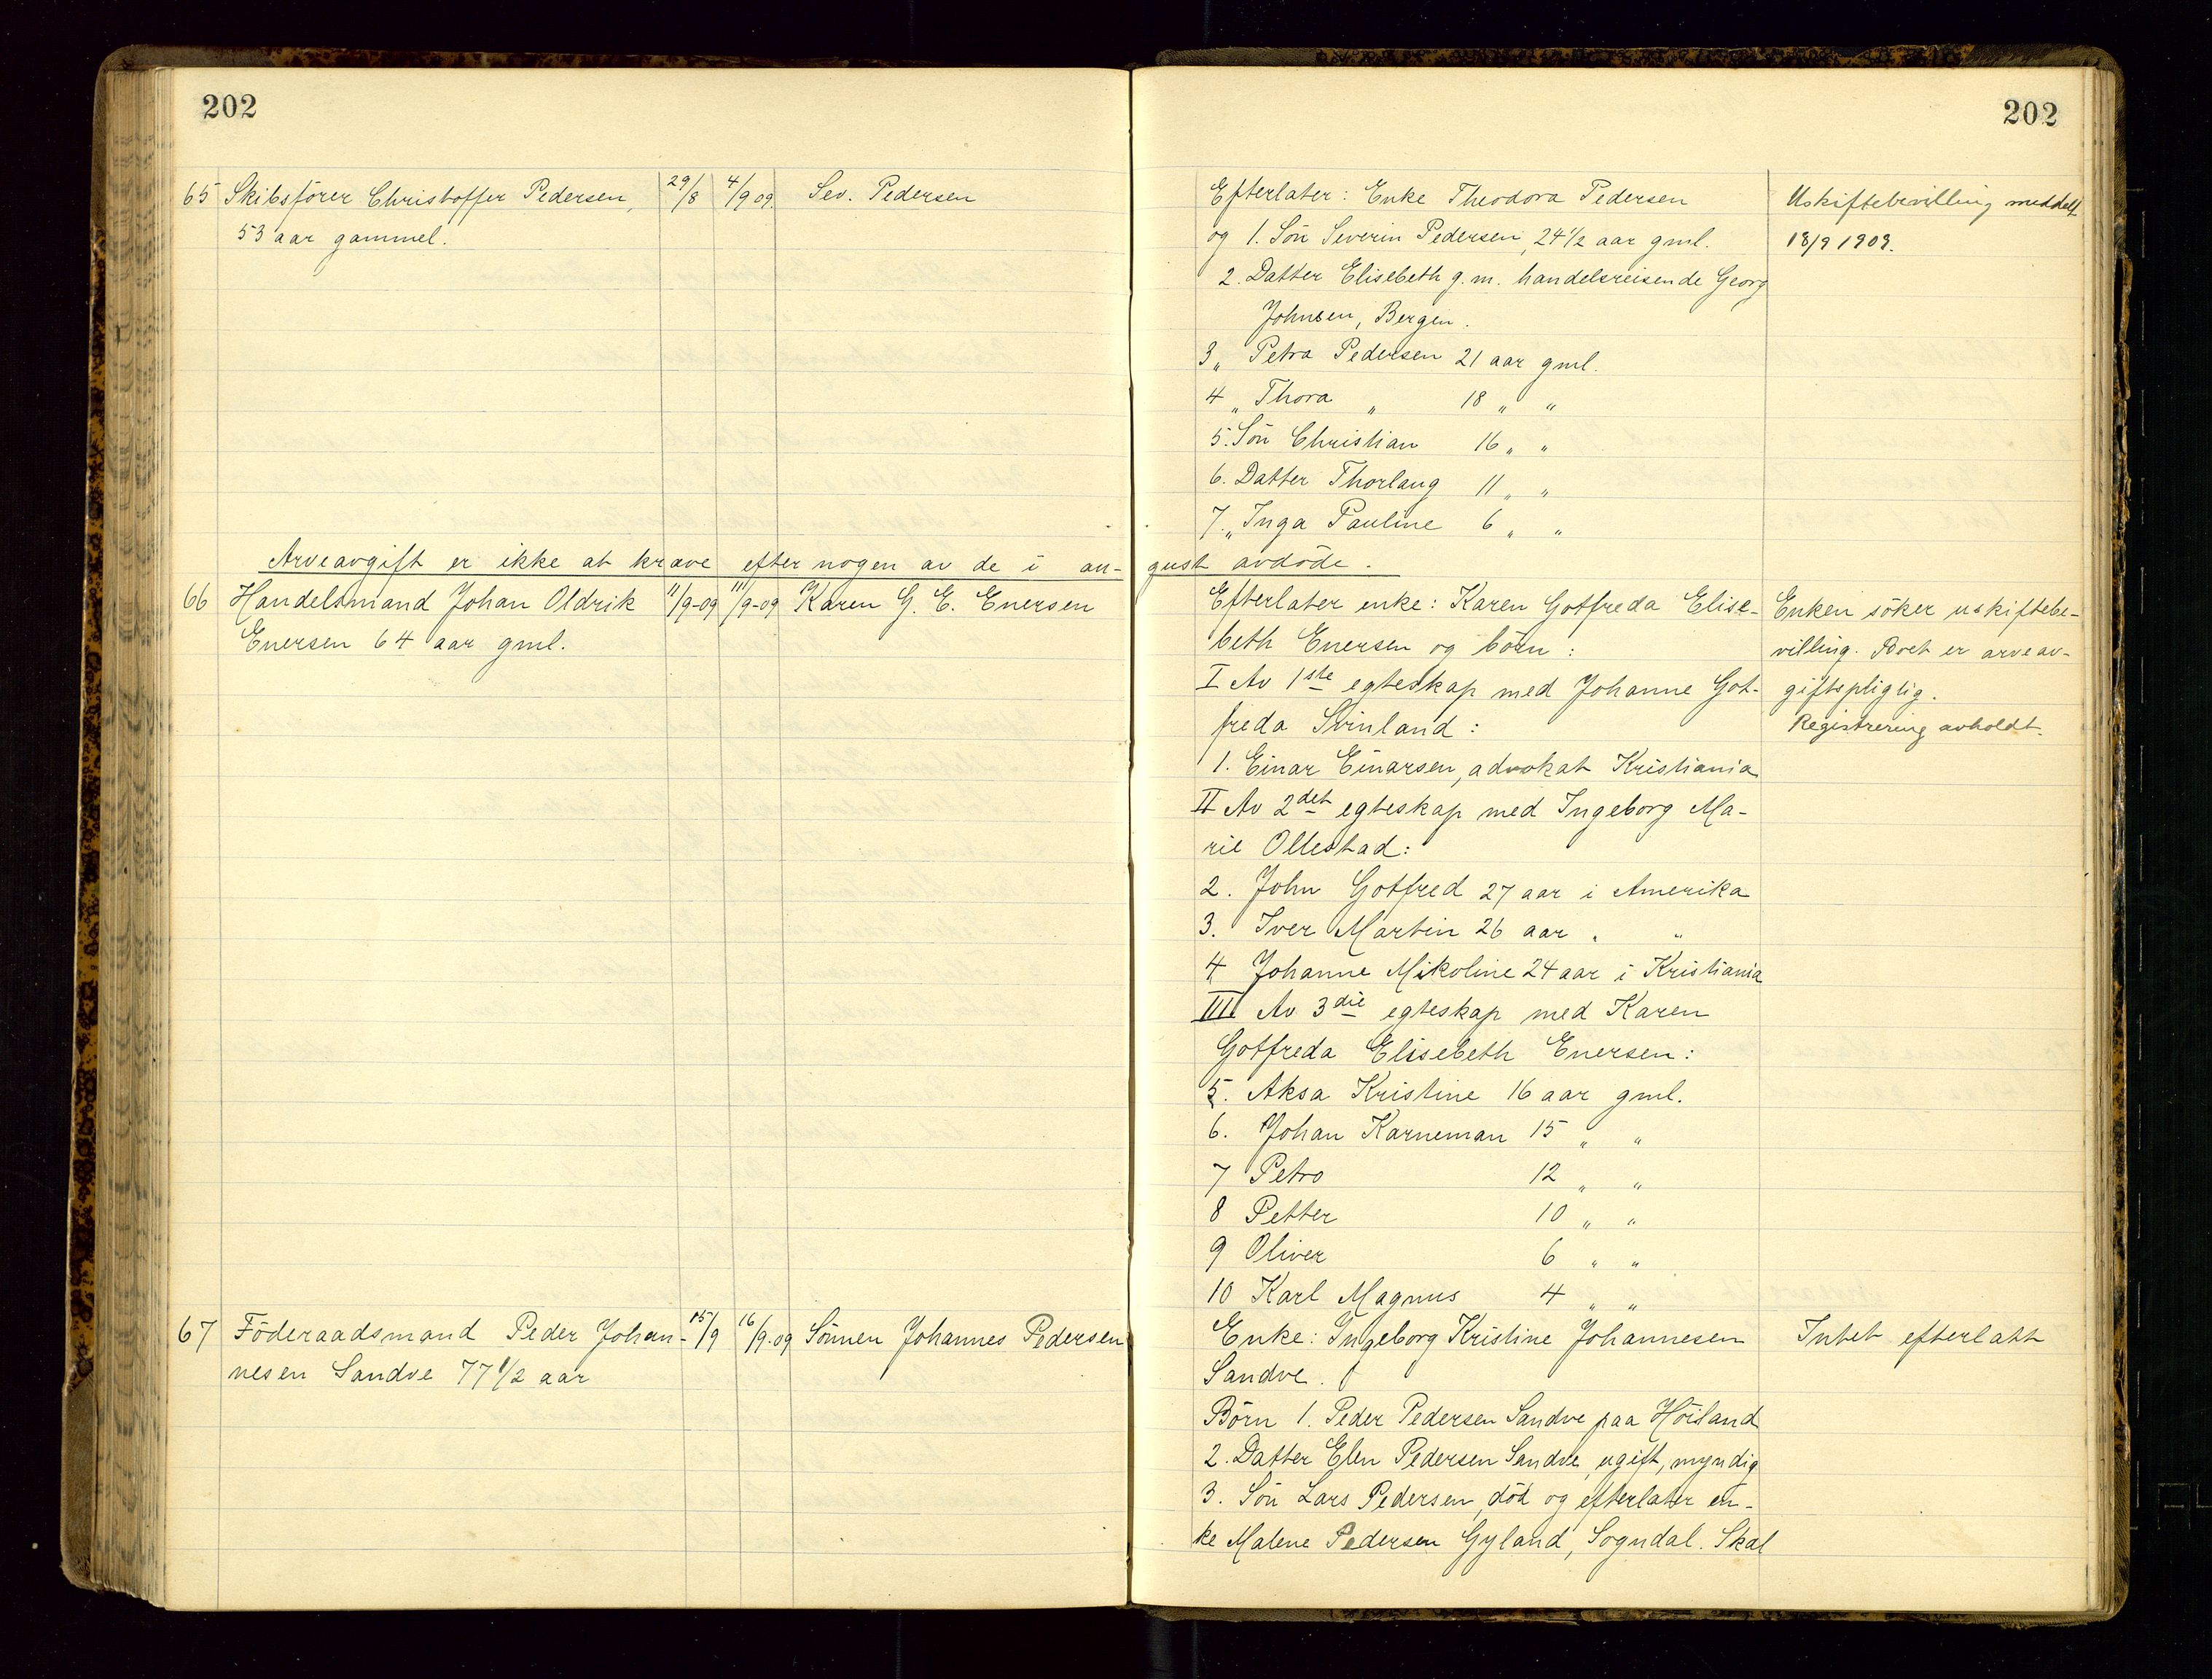 202
65 Skibsfører Christoffer Pedersen, 29/8 4/9 09. Sev. Pedersen
53 aar gammel.
Arveavgift er ikke at kræve efter nogen av de i au-
66 Handelsmand Johan Oldrik 11/9-09 11/9-09 Karen G. E. Enersen
Enersen 64 aar gml.
67 Föderaadsmand Peder Johan- 15/9 16/9-09 Sönnen Johannes Pedersen
nesen Sandve 77 1/2 aar
202
Efterlater: Enke Theodora Pedersen
og 1. Søn Severin Pedersen, 24 1/2 aar gml.
2. Datter Elisebeth g. m. handelsreisende Georg
Johnsen, Bergen.
3 „ Petra Pedersen 21 aar gml.
4 „ Thora „ 18 „ „
5. Søn Christian 16 „ „
6. Datter Thorlaug 11 „ „
7. „ Inga Pauline 6 „ „
gust avdøde.
Efterlater enke: Karen Gotfreda Elise-
beth Enersen og børn:
I Av 1ste egteskap med Johanne Got-
freda Svinland:
1. Einar Einarsen, advokat Kristiania
II Av 2det egteskap med Ingeborg Ma-
rie Ollestad:
2. John Gotfred 27 aar i Amerika
3. Iver Martin 26 aar „ „
4 Johanne Mikoline 24 aar i Kristiania
III Av 3die egteskap med Karen
Gotfreda Elisebeth Enersen:
5. Aksa Kristine 16 aar gml.
6. Johan Karneman 15 „ „
7 Petro 12 „ „
8 Petter 10 „ „
9 Oliver 6 „ „
10 Karl Magnus 4 „ „
Enke: Ingeborg Kristine Johannesen
Sandve.
Børn 1. Peder Pedersen Sandve paa Höiland
2. Datter Elen Pedersen Sandve, ugift, myndig
3. Søn Lars Pedersen, død og efterlater en-
ke Malene Pedersen Gyland, Sogndal. Skal
Uskiftebevilling meddelt
18/9 1909.
Enken söker uskiftebe-
villing. Boet er arveav-
giftspligtig.
Registrering avholdt.
Intet efterlatt